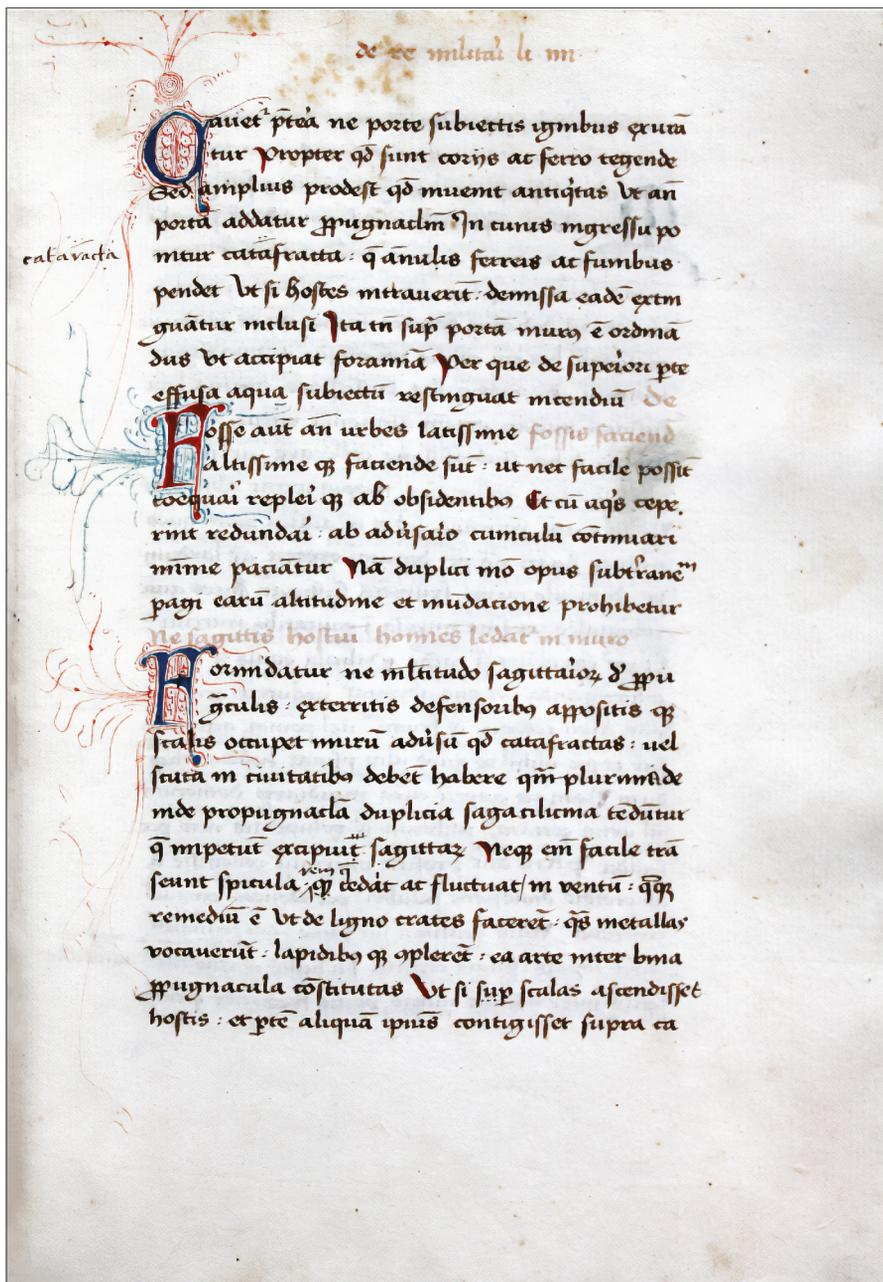 de re militari li iiii
Cauet᷑ p̄tea ne porte subiectis ignibus exurā
tur Propter qd̄ sunt coriis ac ferro tegende
Sed amplius prodest qd̄ inuenit antiq̇tas Vt an̄
portā addatur ꝓpugnaclm̄ In cuius ingressu po
catavacta
nitur catafracta : q̄ anulis ferreis ac funibus
pendet Vt si hostes intraverīt : demissa eadē extin
guātur inclusi Ita tn̄ sup̄ portā murꝰ ē ordinā
dus Vt accipiat foramīa Per que de superiori ꝑte
effusa aqua subiectū restinguat incendiū de
Fosse aūt an̄ urbes latissime fossis faciend
altissime qꝫ faciende sūt : ut nec facile possīt
coequari repleri qꝫ ab obsidentibꝰ Et cū aq̇s cepe.
rint redundari : ab adūsario cuniculū cōtinuari
mīme paciātur Nā duplici mō opus subtͬraneͫ
ꝑagi earū altitudine et inūdacione prohibetur
Ne sagittis hostiū homīes ledāt᷑ in muro
Formidatur ne ml̄titudo sagittarioꝝ d̓ ꝓpu
gn̄culis : exterritis defensoribꝰ appositis qꝫ
scalis occupet murū adūsū qd̄ catafractas : uel
scuta in civitatibꝰ debēt habere qm̄ plurimi de
inde propugnacl̄a duplicia saga cilicina tēdūtur
q̄ impetūt excipiūt sagittaꝝ Neqꝫ em̄ facile trā
seunt spicula rem q̄ qꝫ cedāt ac fluctuat / in ventū : qͣqꝫ
remediū ē Vt de ligno crates facerēt : qͣs metallas
vocaverūt : lapidibꝰ qꝫ ꝯplerēt : ea arte inter bina
ꝓpugnacula cōstitutas Vt si suꝑ scalas ascendisset
hostis : et ꝑtē aliquā ipiūs contigisset supra ca